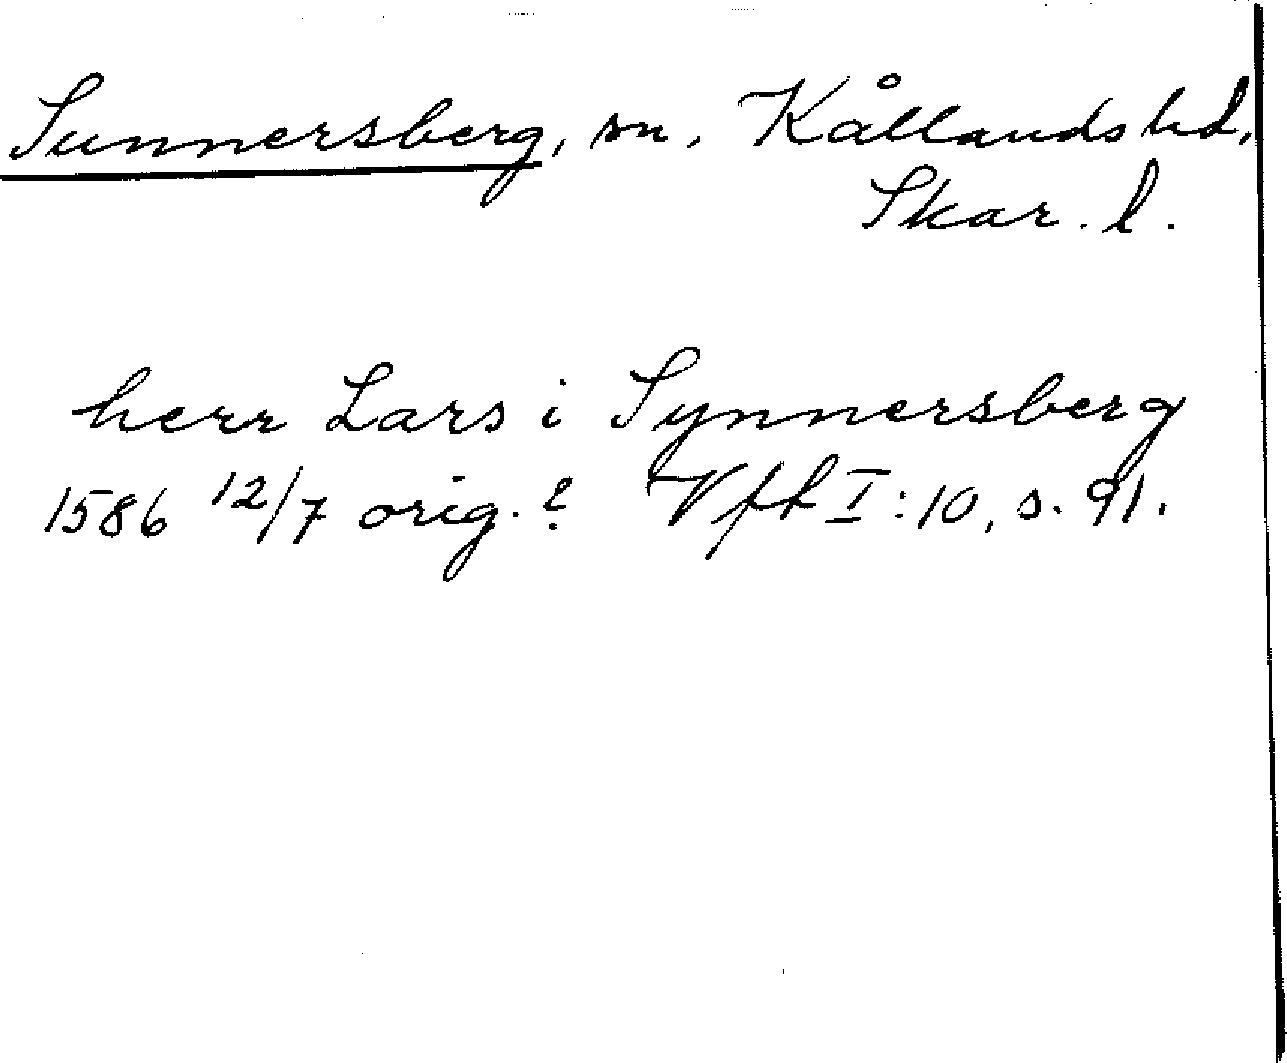 Sunnersberg, sn, Kållands hd,
Skar. l.
herr Lars i Synnersberg
1586 12/7 orig.? Vft I:10, s. 91.